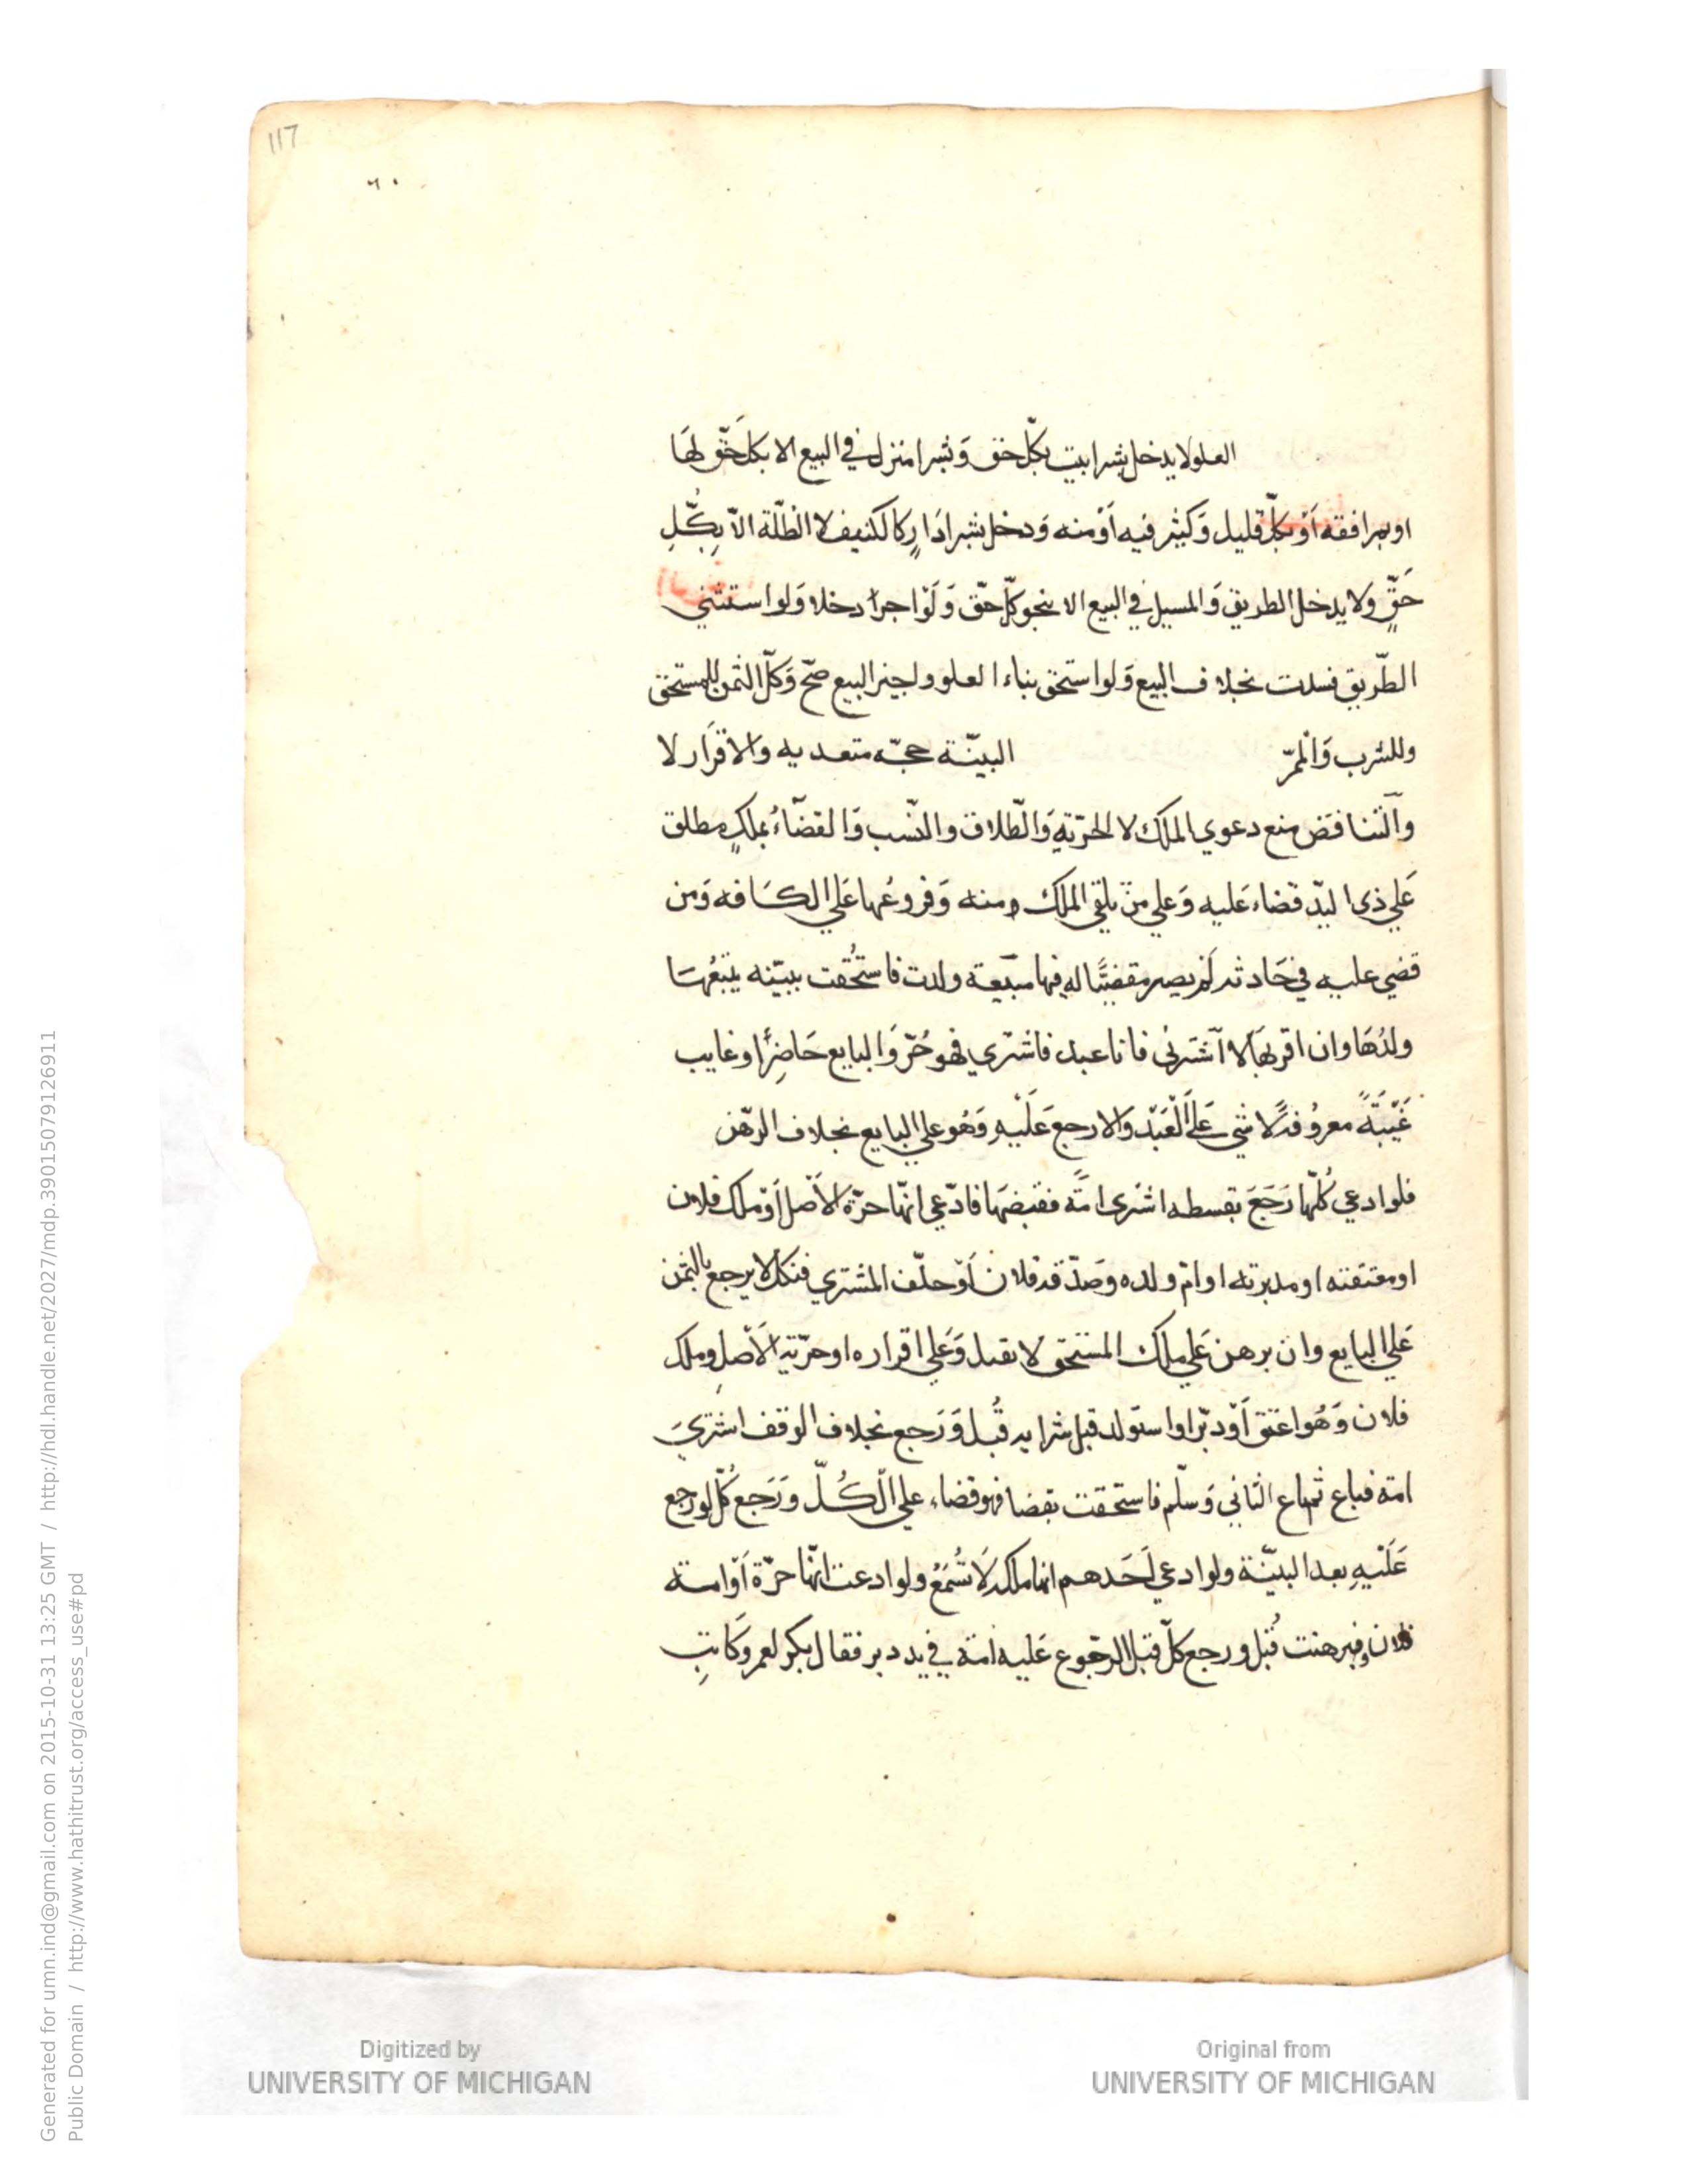 117
٦٠
العلو لا يدخل بشرا بيت بكلّ حق وَشرا منزل في البيع الا بكل حَقّ لهَا
او بمرافقه اَوْ بكلّ قليل وَكثير فيه اَوْ منه وَدخل بشرا دَارٍ كالكنيف لا الظلّة الاّ بِكُّلِ
حَقٍّ ولا يدخل الطريق وَالمسيل في البيع الا بنحو كلّ حَقّ وَلَوْ اجرا دخلا وَلو استثني
الطّريق فسدت بخلاف البيع وَلو استحق بناء العلو واجيز البيع صحّ وَكلّ الثمن للمستحق
وللشرب وَالْممَرّ البيّنة حجّه متعديه والاقْرَار لا
وَالتّناقض منع دعوي الملك لا الحرّيةِ وَالطّلاق والنّسب وَالقضَاءُ بملكٍ مطلق
عَلي ذي اليدّ قضاء عَليه وَعلي منْ تلقي الملك منه وَفروعُها عَلي الكَافه وَمن
قضي عليه في حَادثه لم يصر مقضيًّا له فيها مبيعة ولدت فاستُحقت ببيّنه يتبعُهَا
ولدُهَا وان اقر بهَا لا اَشترني فانا عبد فاشتري فهو حُرّ وَالبايع حَاضِرًا او غايب
غَيْبَةً معروُفه لا شي عَلَى الْعَبْد والا رجع عَلَيْهِ وَهُو علي البايع بخلاف الرّهن
فلو ادعي كُلّها رَجَعَ بقسطه اشترى امَةً فقبضهَا فادّعي انّها حرّة الاَصْل اَوْ ملك فلان
او معتقته او مدبرته او امّ ولده وصَدّقه فلان اَوْ حلّف المشتري فنكل لا يرجع بالثمن
عَلي البايع وان برهن عَلي ملك المستحق لا تقبل وَعَلي اقراره او حرّية الاَصْلِ وملك
فلان وَهُو اعتق اَوْ دبّر او استولد قبل شرايه قُبل وَرَجع بخلاف الوقف اشتريَ
امة فباع ثم باع الثاني وَسلّم فاستحقت بقضا فهو قضاء علي الكُلّ ورَجع كُلّ لو رجع
عَلَيْهِ بعد البيّنة ولو ادعي اَحَدهم انها ملكه لَا تُسْمَعُ ولو ادعت انّها حرّة اَوْ امة
فلان وبرهنت قُبل ورجع كلّ قبل الرّجوع عَليه امة في يد دبر فقال بكر لعمرو كَاتبِ
Generated for umn.ind@gmail.com on 2015-10-31 13:25 GMT / http://hdl.handle.net/2027/mdp.39015079126911
Public Domain / http://www.hathitrust.org/access_use#pd
Digitized by
UNIVERSITY OF MICHIGAN
Original from
UNIVERSITY OF MICHIGAN